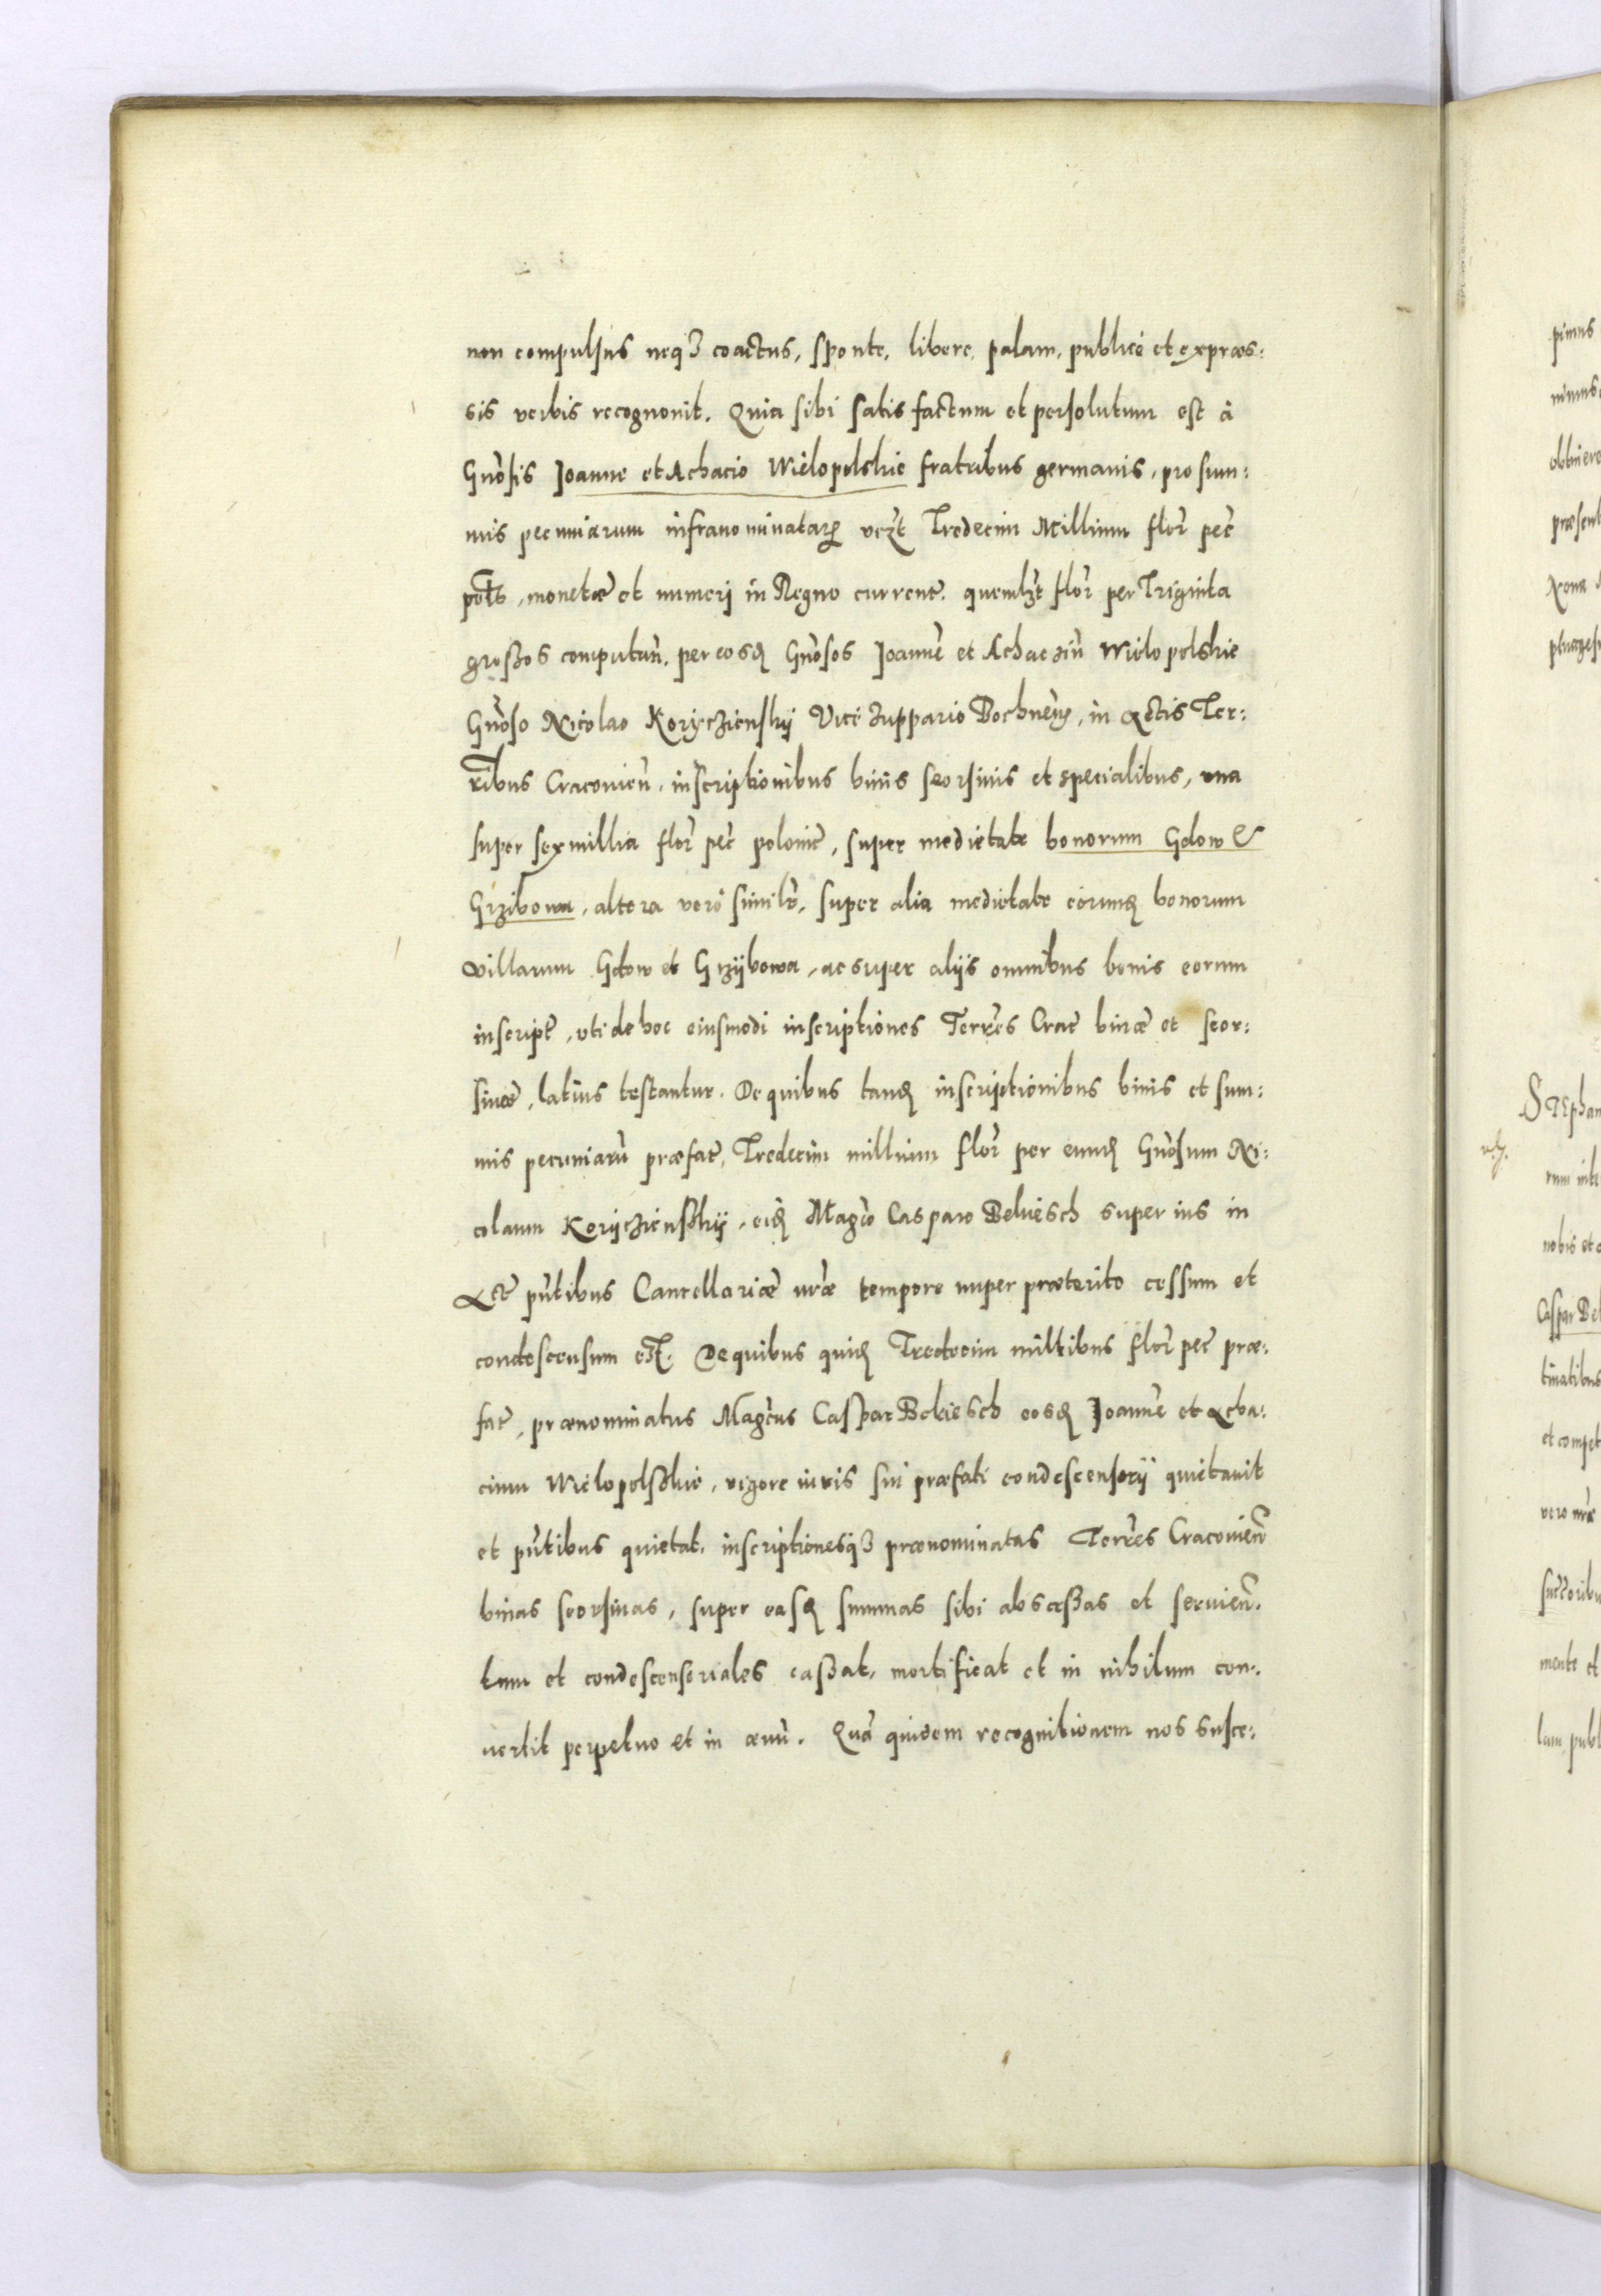 non compulsus neqȝ coactus, sponte, libere, palam, publice et expræs:
sis verbis recognouit. Quia sibi satis factum et persolutum est à
Gnosis Joanne et Achacio Wielopolskie fratribus germanis, pro sum:
mis pecuniarum infranominatarꝝ vezt Tredecim Millium flor pec
polt, monetæ et numeri in Regno current. quemlzt flor per Triginta
grossos computan. per eosd Gnosos Joanne et Achacziu Wielopolskie
Gnoso Nicolao Koryczienskij Vice zuppario Bochnen, in Actis Ter:
ribus Cracouien. inscriptionibus binis seorsiuis et specialibus, vna
super sex millia flor pec polonic, super medietate bonorum Gdow et
Grzibowa, altera vero similr, super alia medietate eorund bonorum
villarum Gdow et Grzÿbowa, ac super alijs omnibus bonis eorum
inscript, vti de hoc eiusmodi inscriptiones Terres Crac binæ et seor:
siuæ, latius testantur. De quibus tand inscriptionibus binis et sum:
mis pecuniaru præfat, Tredecim millium flor per eund Gnosum Ni:
colaum Koryczienskÿ, eid Magco Casparo Bekiesch superius in
Act pntibus Cancellariæ nræ tempore nuper præterito cessum et
condescensum est. De quibus quid Tredecim millibus flor pec præ:
fat, prænominatus Magcus Caspar Bekiesch eosd Joanne et Acha:
cium Wielopolskie, vigore iuris sui præfati condescensorÿ quietauit
et pntibus quietat, inscriptionesqȝ prænominatas Terres Cracouien
binas seorsiuas, super easd summas sibi ab
et seruien.
tum et condescensoriales cassat, mortificat et in nihilum con:
uertit perpetuo et in æuu. Qua quidem recognitionem nos susce: